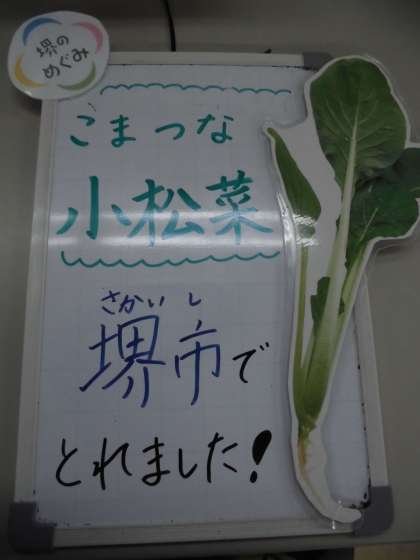 堺の
めぐみ
こまつな
小松菜
さかいし
堺市で
とれました!